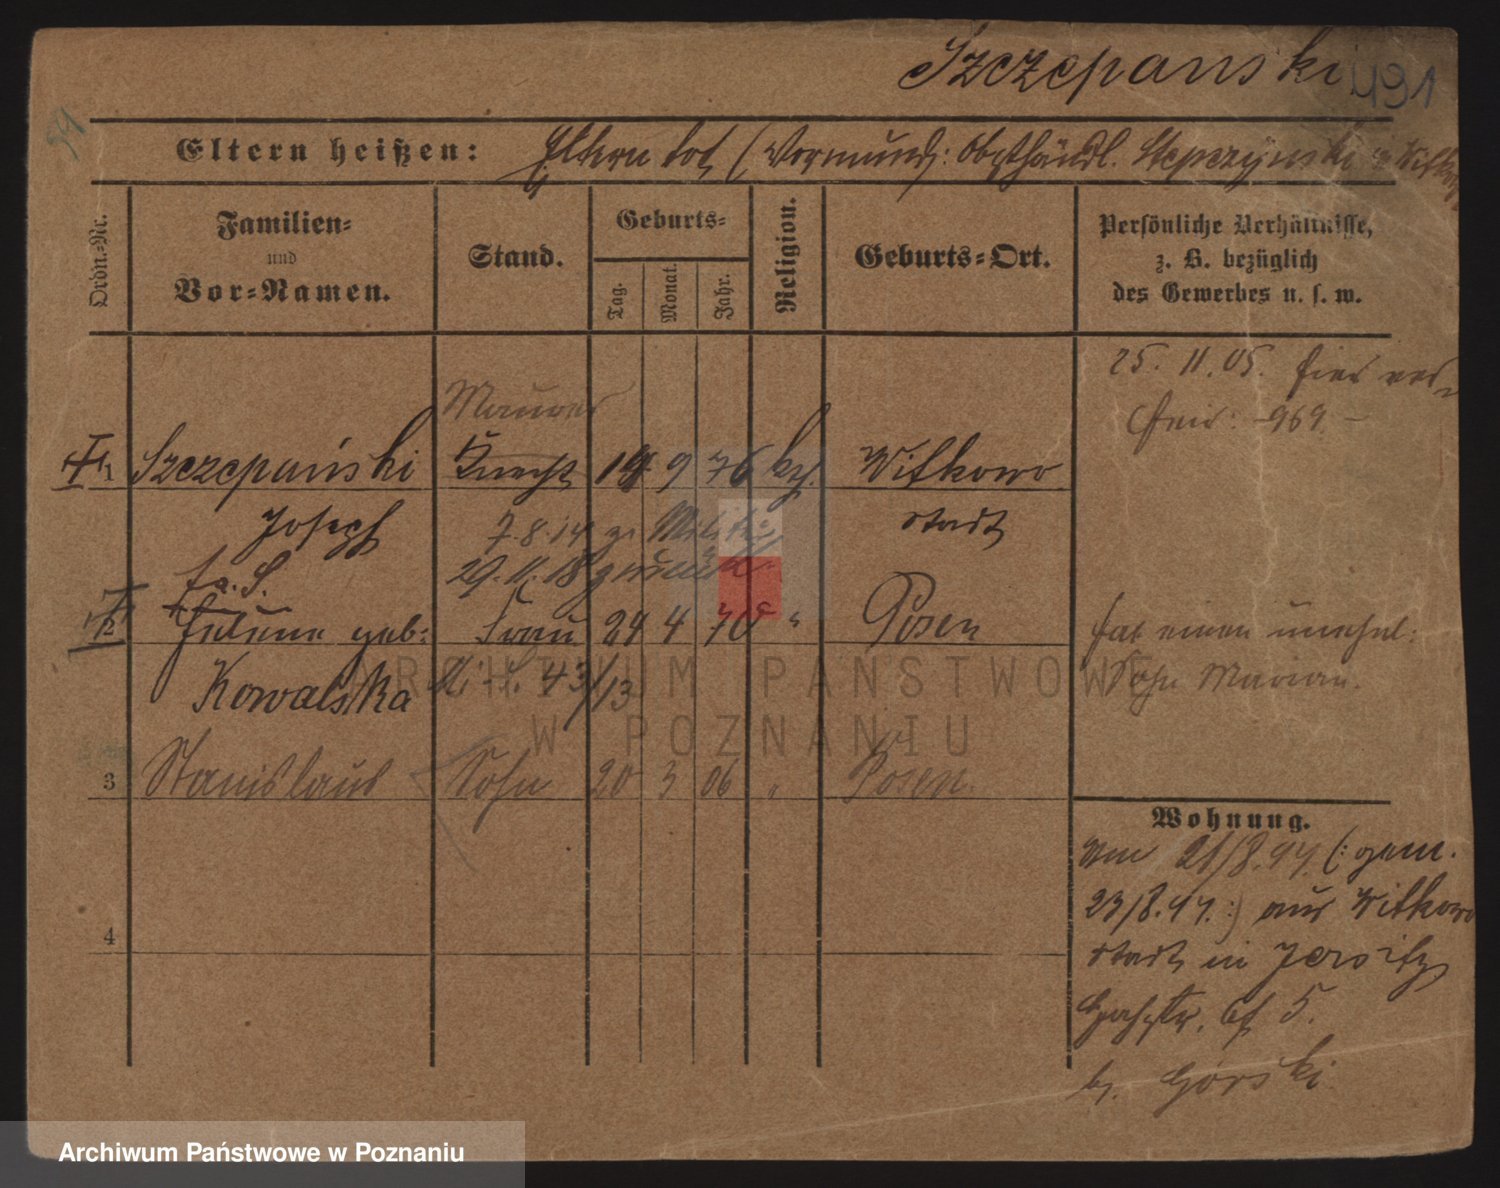 Szczepanski 491
Eltern heißen: Eltern tot (Vormund: Obsthändl. Stepczynski in Witkowo
Ordn.-Nr.
Familien-
und
Vor-Namen.
Stand.
Geburts-
Tag.
Monat.
Jahr.
Religion.
Geburts-Ort.
Persönliche Verhältnisse,
z. B. bezüglich
des Gewerbes u. s. w.
25. 11. 05. hier
969.
Maurer
1 Szczepański Knecht 19 9 76 kth. Witkowo
Joseph 7.8.14 z. Militär Stadt
29.11.18 zurück
2 Helene geb: Frau 24 4 78 " Posen
hat einen unehel:
Kowalska 43/13
Sohn Marian.
3 Stanislaus Sohn 20 3 06 " Posen.
4
Wohnung.
Am 21/8.97. (: gem.
23/8.97. :) aus Witkowo
Stadt in Jersitz
5.
b. Górski
ARCHIWUM PAŃSTWOWE
W POZNANIU
Archiwum Państwowe w Poznaniu